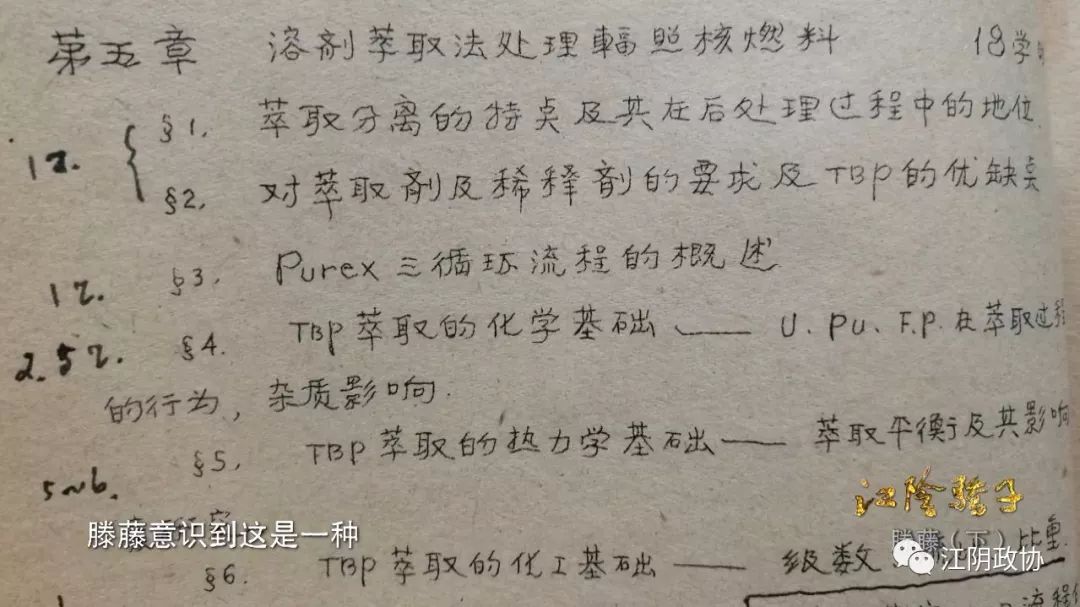 第五章 溶剂萃取法处理辐照核燃料 18学
§1. 萃取分离的特点及其在后处理过程中的地位
12.
§2. 对萃取剂及稀释剂的要求及TBP的优缺点
12. §3. Purex三循环流程的概述
2.52. §4. TBP萃取的化学基础—— U、Pu、F.P.在萃取过程
的行为，杂质影响.
§5. TBP萃取的热力学基础—— 萃取平衡及其影响
5~6.
江阴骄子
滕藤意识到这是一种
滕藤（下）比重
§6. TBP萃取的化工基础—— 级数
江阴政协
流程